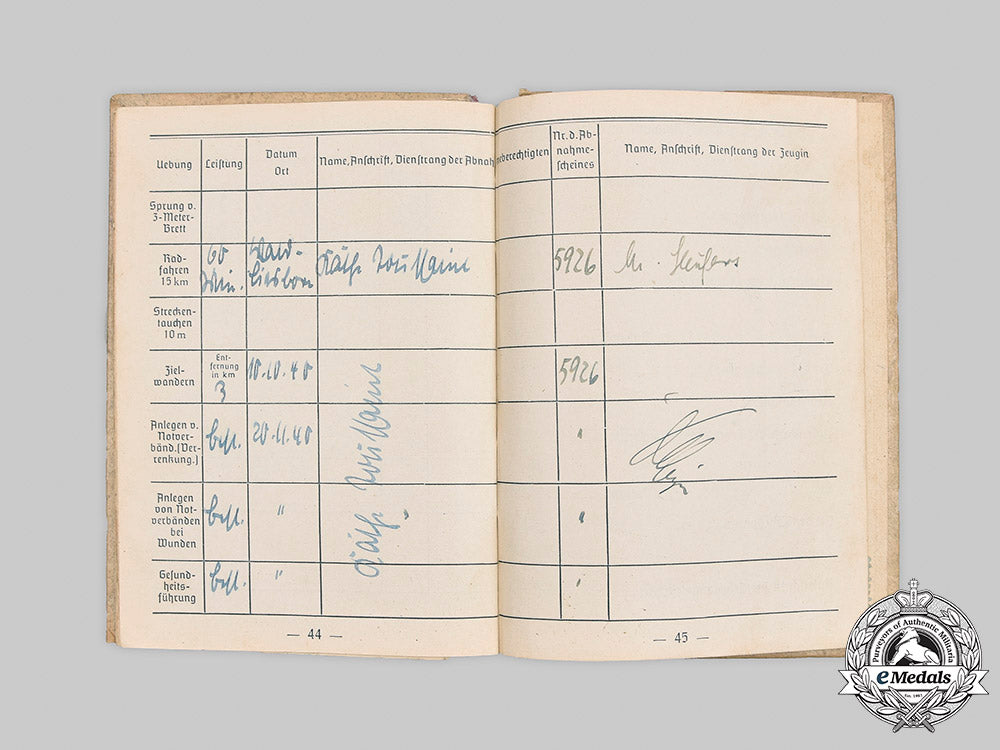 Uebung Leistung Datum Ort Name, Anschrift, Dienstrang der Abnahmeberechtigten Nr. d. Ab-
nahme-
scheines Name, Anschrift, Dienstrang der Zeugin
Sprung v.
3-Meter-
Brett
Rad-
fahren
15 km
60
Min.
Wald-
liesborn
Käthe Toussaint
5926
Strecken-
tauchen
10 m
Ziel-
wandern
Ent-
fernung
in km
3
10.10.40
5926
Anlegen v.
Notver-
bänd. (Ver-
renkung.)
best.
20.11.40
"
Käthe Toussaint
Anlegen
von Not-
verbänden
bei
Wunden
best.
"
"
Gesund-
heits-
führung
best.
"
"
— 44 —
— 45 —
Purveyors of Authentic Militaria
eMedals